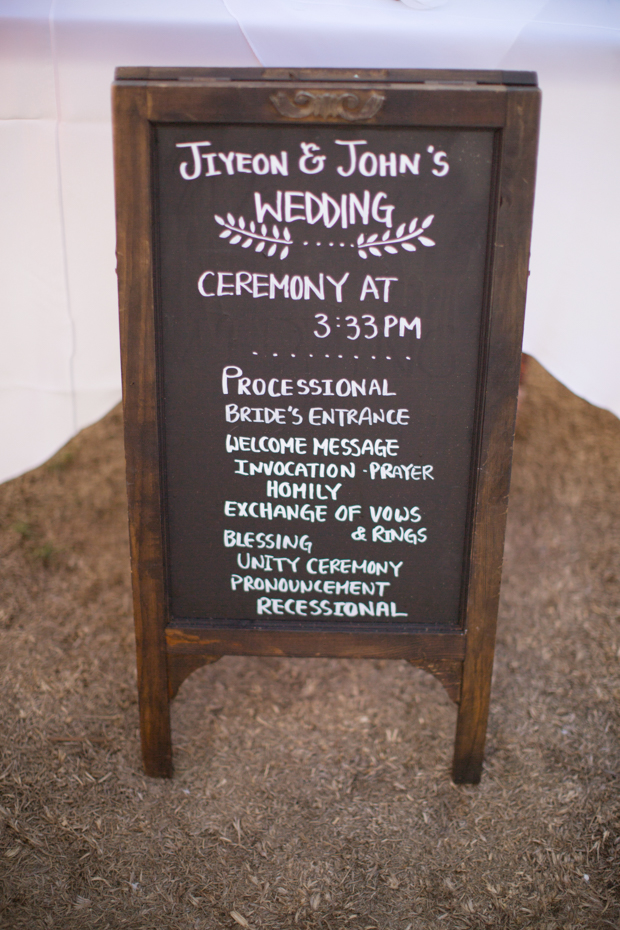 JIYEON & JOHN'S
WEDDING
CEREMONY AT
3:33PM
PROCESSIONAL
BRIDE'S ENTRANCE
WELCOME MESSAGE
INVOCATION - PRAYER
HOMILY
EXCHANGE OF VOWS
& RINGS
BLESSING
UNITY CEREMONY
PRONOUNCEMENT
RECESSIONAL